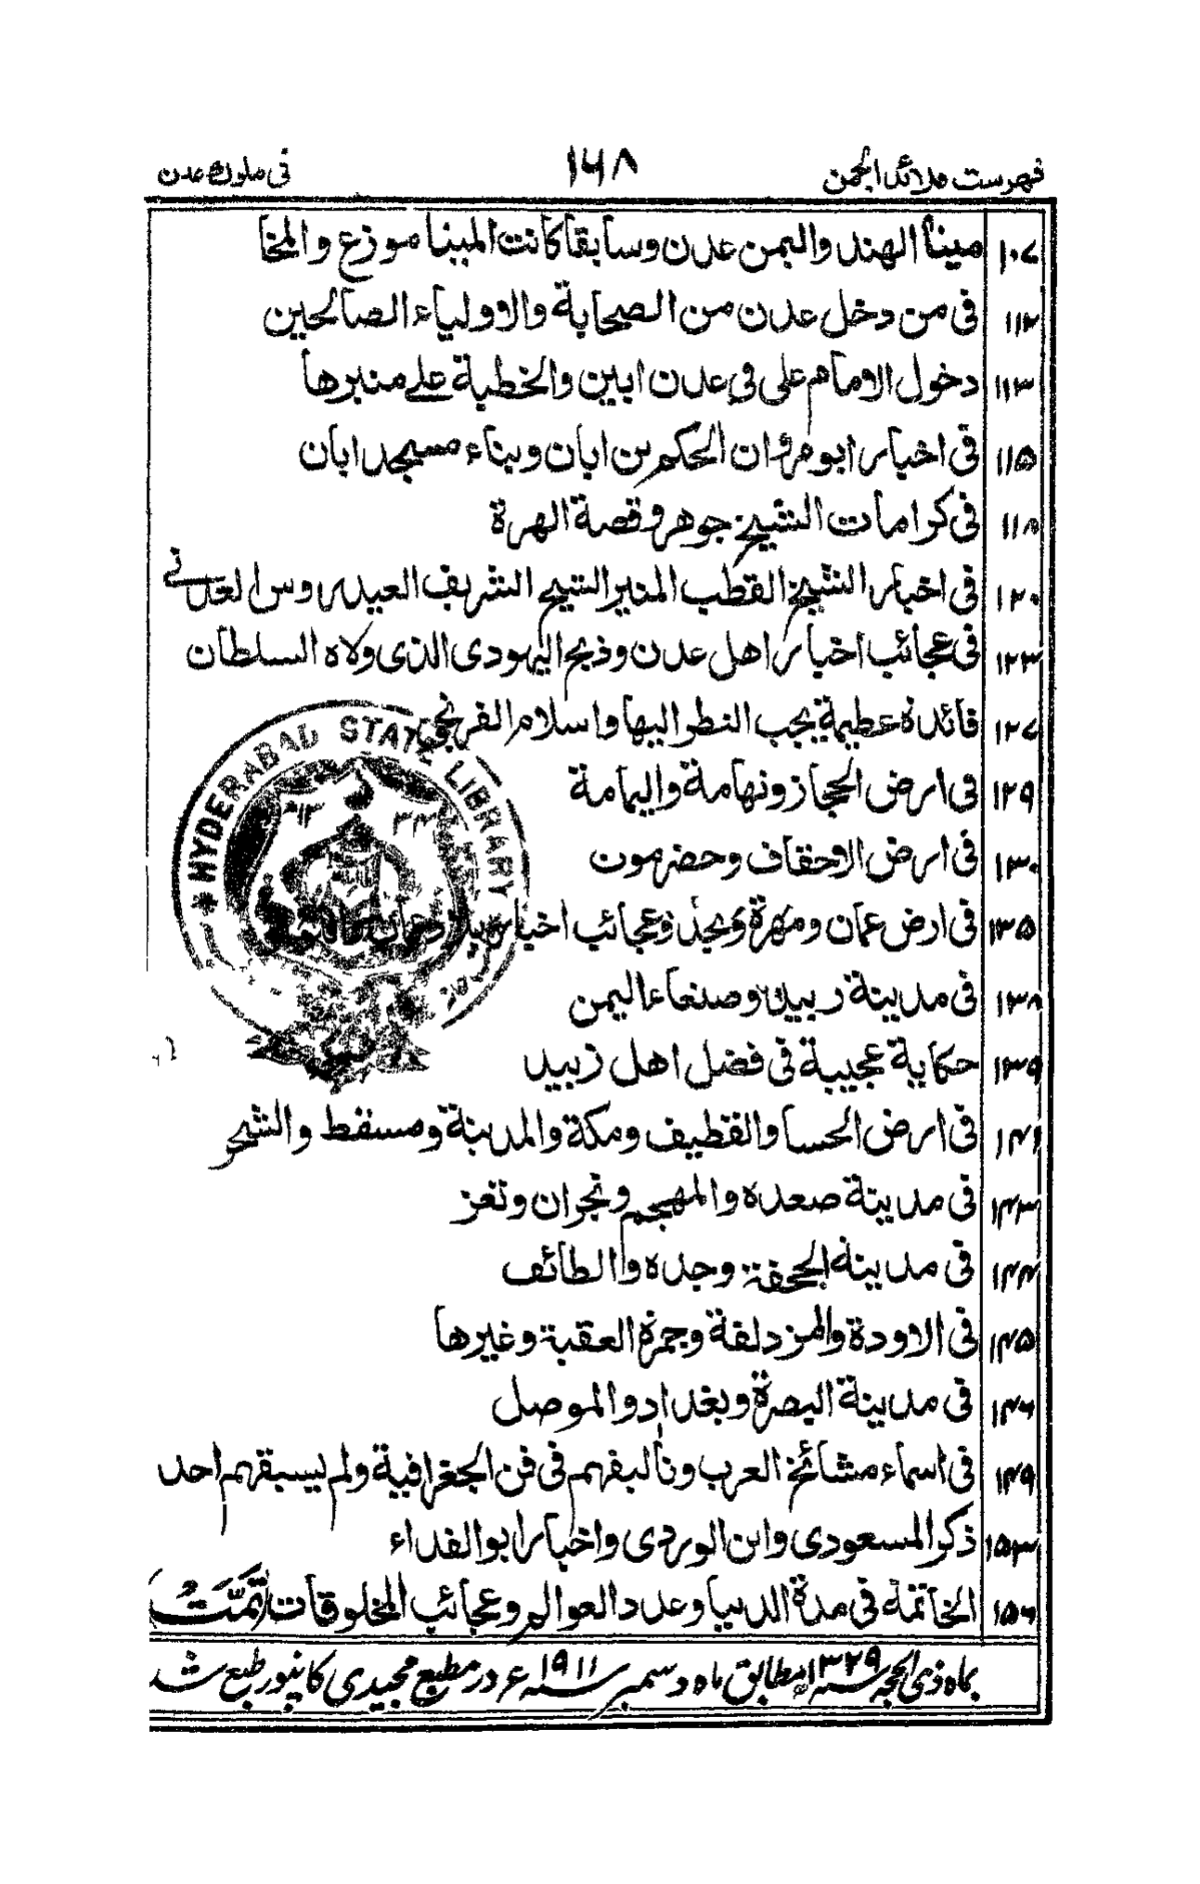 فهرست هدائد الجمن ١٦٨ فى ملوك عدن
١٠٧ مينأ الهند واليمن عدن وسابقا كانت المينا موزع والمخا
١١٢ فى من دخل عدن من الصحابة والاولياء الصالحين
١١٣ دخول الامام على فى عدن ابين والخطبة على منبرها
١١٥ فى اخبار ابو مروان الحكم بن ابان وبناء مسجد ابان
١١٨ فى كرامات الشيخ جوهر وقصة الهرة
١٢٠ فى اخبار الشيخ القطب المنير الشيخ الشريف العيدروس العدنى
١٢٣ فى عجائب اخبار اهل عدن وذبح اليهودى الذى ولاه السلطان
١٢٧ فائدة عظيمة يجب النظر اليها واسلام الفرنجى
١٢٩ فى ارض الحجاز وتهامة واليمامة
١٣٠ فى ارض الاحقاف وحضرموت
١٣٥ فى ارض عمان ومهرة ونجد وعجائب اخبار بلاد عمان
١٣٨ فى مدينة زبيد وصنعاء اليمن
١٣٩ حكاية عجيبة فى فضل اهل زبيد
١٤١ فى ارض الحسا والقطيف ومكة والمدينة ومسقط والشحر
١٤٣ فى مدينة صعده والمهجم ونجران وتعز
١٤٤ فى مدينة الجحفة وجده والطائف
١٤٥ فى الاودة والمزدلفة وجمرة العقبة وغيرها
١٤٦ فى مدينة البصرة وبغداد والموصل
١٤٩ فى اسماء مشائخ العرب وتأليفهم فى فن الجغرافية ولم يسبقهم احد
١٥٣ ذكر المسعودى وابن الوردى واخبار ابو الفداء
١٥٦ الخاتمة فى مدة الدنيا وعدد العوالم وعجائب المخلوقات (تَمَّتْ)
بماه ذى الحجه سنه ١٣٢٩ مطابق ماه دسمبر سنه ١٩١١ء در مطبع مجيدى كانپور طبع شد
HYDERABAD STATE LIBRARY